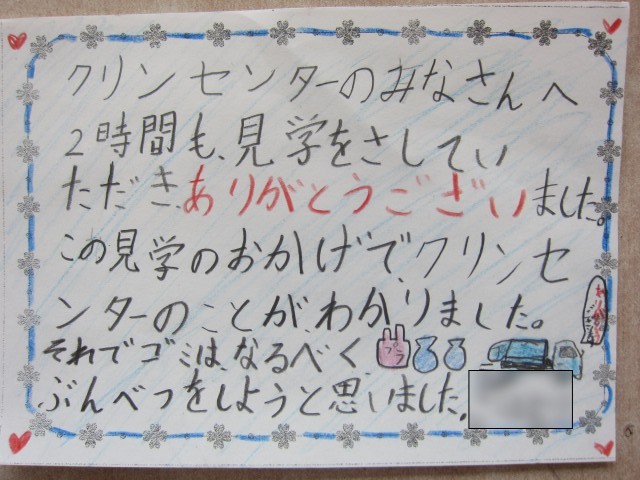 クリンセンターのみなさんへ
2時間も、見学をさしてい
ただき、ありがとうございました。
この見学のおかげで、クリンセ
ンターのことが、わかりました。
それでゴミは、なるべく、
プラ
ぶんべつをしようと思いました。